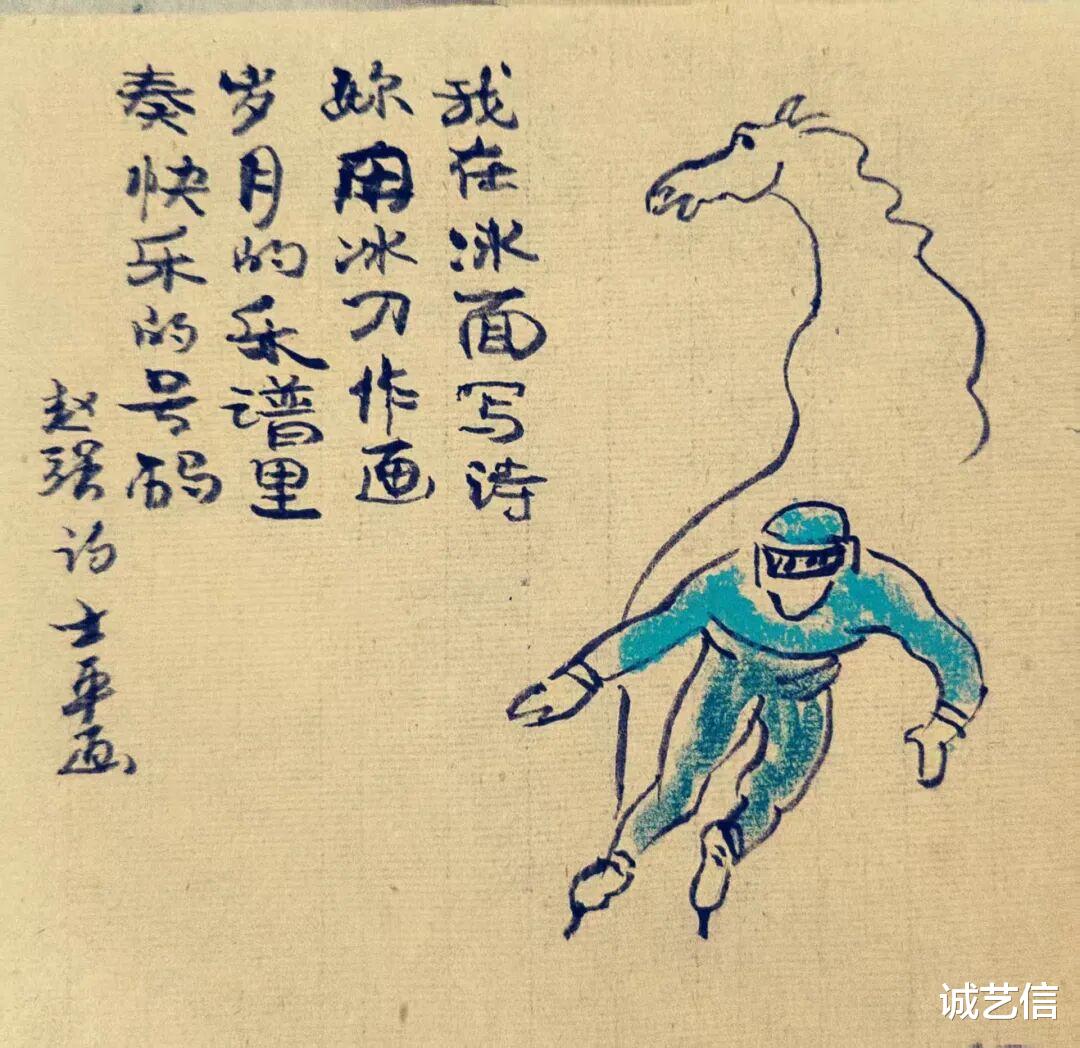 我在冰面写诗
妳用冰刀作画
岁月的乐谱里
奏快乐的号码
赵强诗 士平画
诚艺信